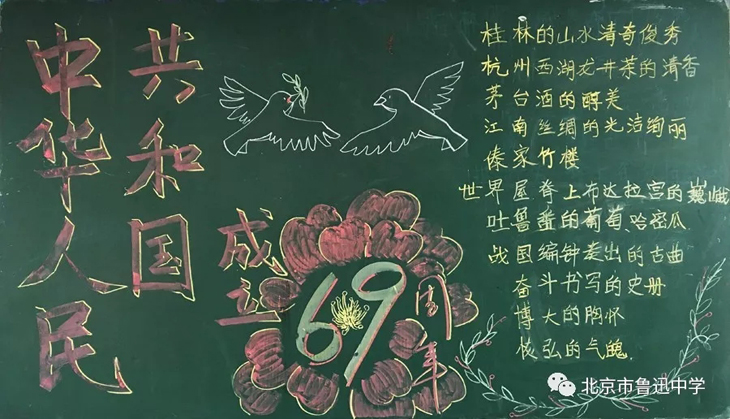 中华人民
共和国
成立
69
周年
桂林的山水清奇俊秀
杭州西湖龙井茶的清香
茅台酒的醇美
江南丝绸的光洁绚丽
傣家竹楼
世界屋脊上布达拉宫的巍峨
吐鲁番的葡萄、哈密瓜
战国编钟奏出的古曲
奋斗书写的史册
博大的胸怀
恢弘的气魄
北京市鲁迅中学